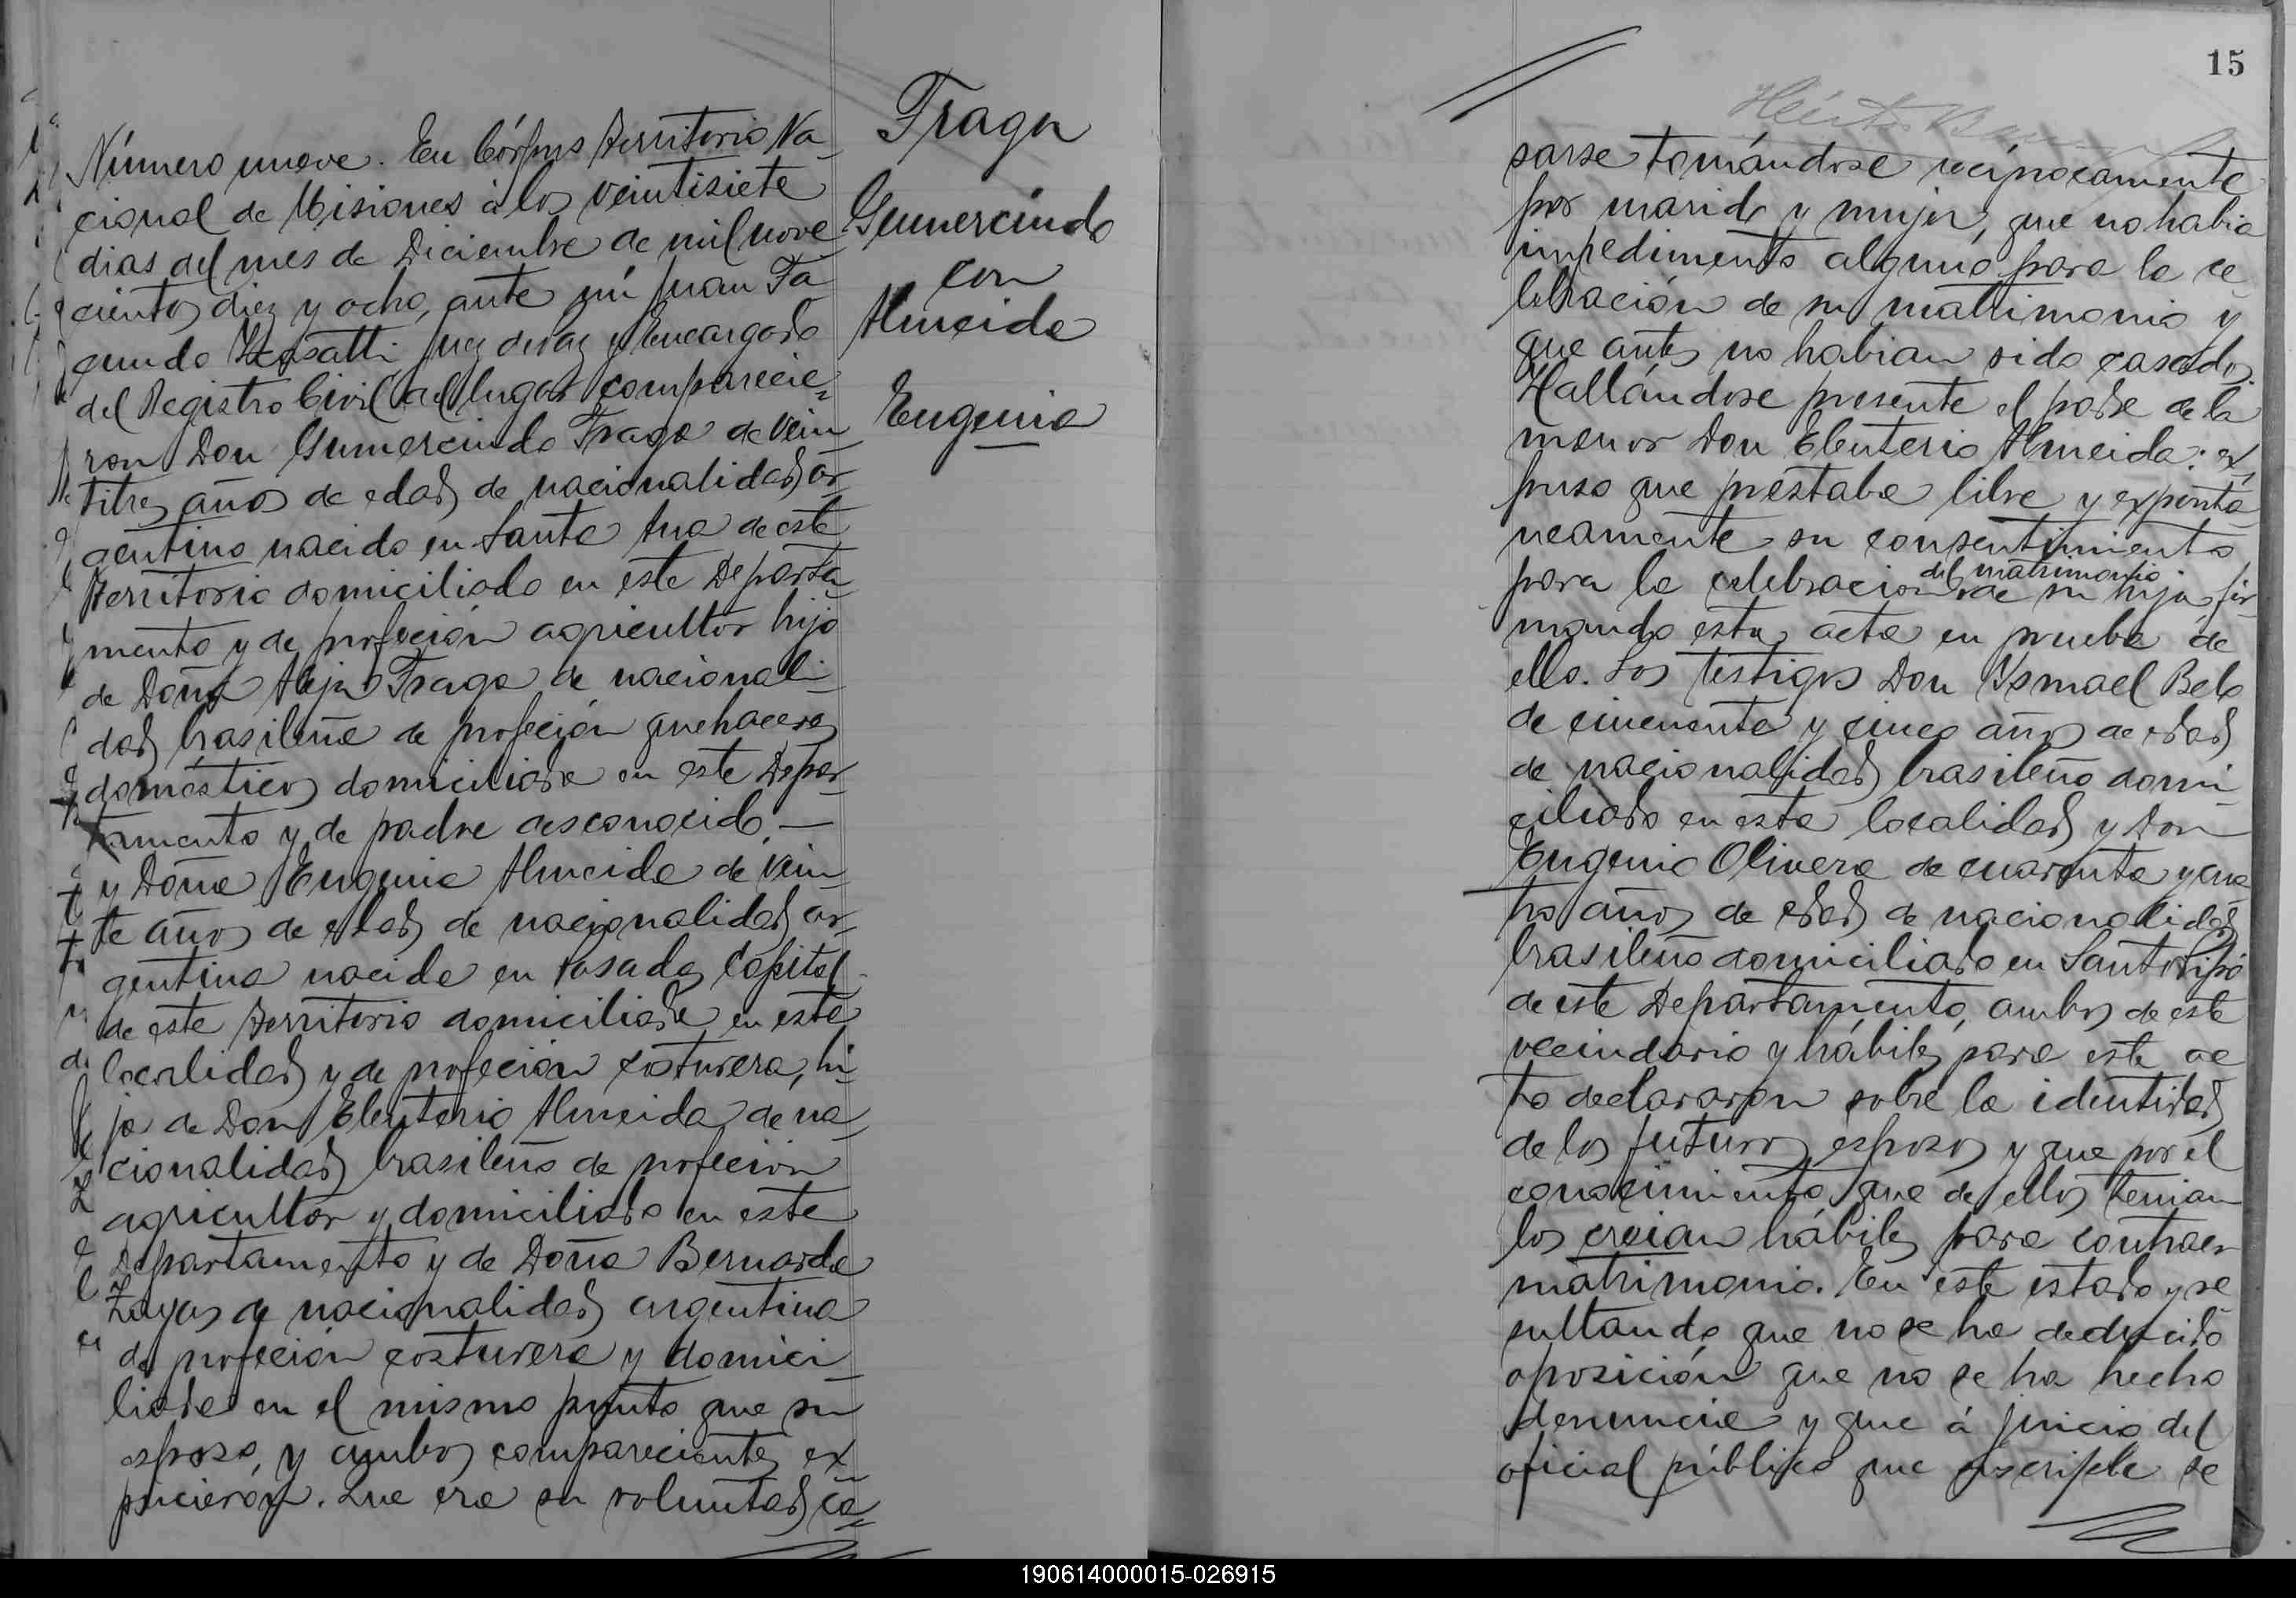 Número nueve. En Córpus Territorio Na-
cional de Misiones á los veintisiete
dias del mes de Diciembre de mil nove-
cientos diez y ocho, ante mi Juan Fa-
cundo Juez de Paz y Encargado
del Registro Civil del lugar comparecie-
ron Don Gumercindo Fraga de vein
titres años de edad de nacionalidad ar-
gentino nacido en Santa Ana de este
Territorio domiciliado en este Departa-
mento y de profeción agricultor hijo
de Doña Fraga de nacionali-
dad brasileña de profeción quehaceres
domésticos domiciliada en este Depar-
tamento y de padre desconocido. —
y Doña Eugenia Almeida de vein-
te años de edad de nacionalidad ar-
gentina nacida en Posadas Capital
de este Territorio domiciliada en esta
localidad y de profeción costurera, hi-
ja de Don Eleuterio Almeida de na-
cionalidad brasileño de profeción
agricultor y domiciliado en este
Departamento y de Doña Bernarda
Zayas de nacionalidad argentina
de profeción costurera y domici-
liada en el mismo punto que su
esposo, y ambos comparecientes ex-
pucierón. Que era su voluntad ca-
Fraga
Gumercindo
con
Almeida
Eugenia
15
sarse tomándose recíprocamente
por marido y mujer, que no habia
impedimento alguno para la ce-
lebración de su matrimonio y
que antes no habian sido casados.
Hallándose presente el padre de la
menor Don Eleuterio Almeida: ex-
puso que prestaba libre y exponta-
neamente su consentimiento
para la celebracion del matrimonio de su hija fir-
mando esta acta en prueba de
ello. Los testigos Don Ysmael Belo
de cincuenta y cinco años de edad
de nacionalidad brasileño domi-
ciliado en esta localidad y Don
Eugenio Olivera de cuarenta y cua-
tro años de edad de nacionalidad
brasileño domiciliado en Santo Pipó
de este Departamento, ambos de este
vecindario y hábiles para este ac-
to declararon sobre la identidad
de los futuros esposos y que por el
conocimiento que de ellos tenian
los creian hábiles para contraer
matrimonio. En este estado y re-
sultando que no se ha deducido
oposición que no se ha hecho
denuncia y que á juicio del
oficial público que suscribe se
190614000015-026915